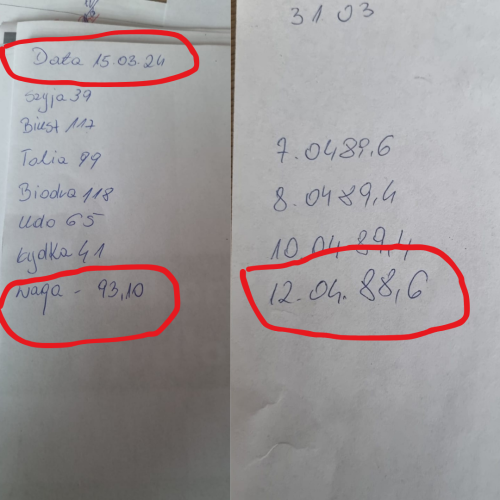 Data 15.03.24
Szyja 39
Biust 117
Talia 99
Biodra 118
Udo 65
Łydka 41
Waga - 93,10
31.03
7.04 89,6
8.04 89,4
10.04 89,4
12.04. 88,6